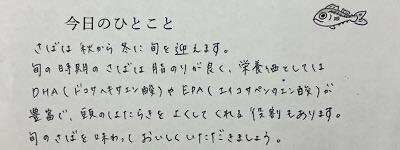 今日のひとこと
さばは秋から冬に旬を迎えます。
旬の時期のさばは脂のりが良く、栄養価としては
DHA(ドコサヘキサエン酸)やEPA(エイコサペンタエン酸)が
豊富で、頭のはたらきをよくしてくれる役割もあります。
旬のさばを味わっておいしくいただきましょう。